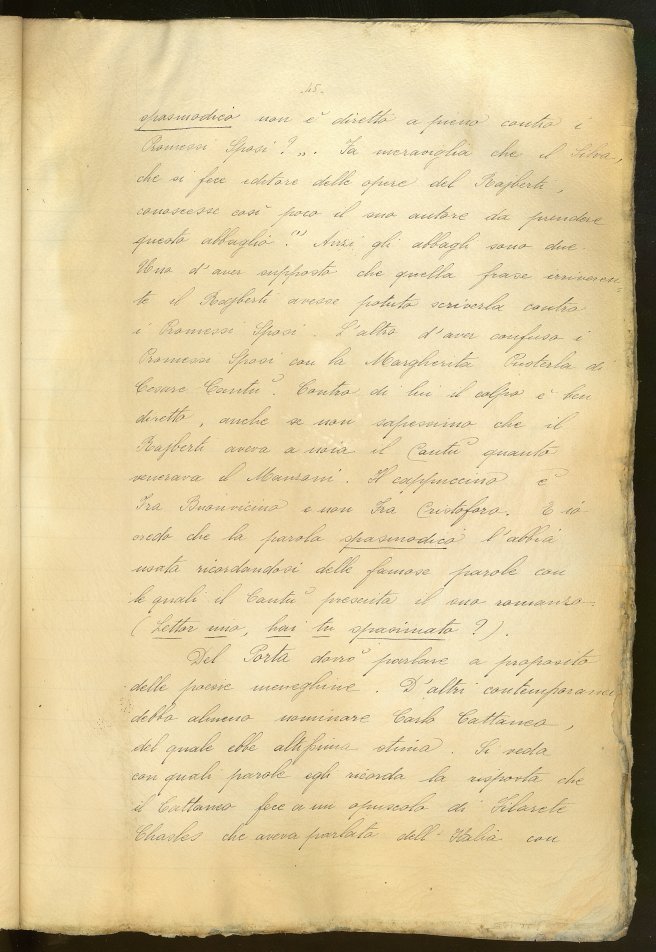 -45-
spasmodico non è diretto a pieno contro i
Promessi Sposi? „. Fa meraviglia che il Silva,
che si fece editore delle opere del Rajberti,
conoscesse così poco il suo autore da prendere
questo abbaglio? (1) Anzi gli abbagli sono due.
Uno d'aver supposto che quella frase irriveren-
te il Rajberti avesse potuto scriverla contro
i Promessi Sposi. L'altro d'aver confuso i
Promessi Sposi con la Margherita Pusterla di
Cesare Cantù. Contro di lui il colpo è ben
diretto, anche se non sapessimo che il
Rajberti aveva a noia il Cantù quanto
venerava il Manzoni. Il cappuccino è
Fra Buonvicino e non Fra Cristoforo. E io
credo che la parola spasmodico l'abbia
usata ricordandosi delle famose parole con
le quali il Cantù presenta il suo romanzo.
(Lettor mio, hai tu spasimato?).
Del Porta dovrò parlare a proposito
delle poesie meneghine. D'altri contemporanei
debbo almeno nominare Carlo Cattaneo,
del quale ebbe altissima stima. Si veda
con quali parole egli ricorda la risposta che
il Cattaneo fece a un opuscolo di Filarete
Chasles che aveva parlato dell'Italia con